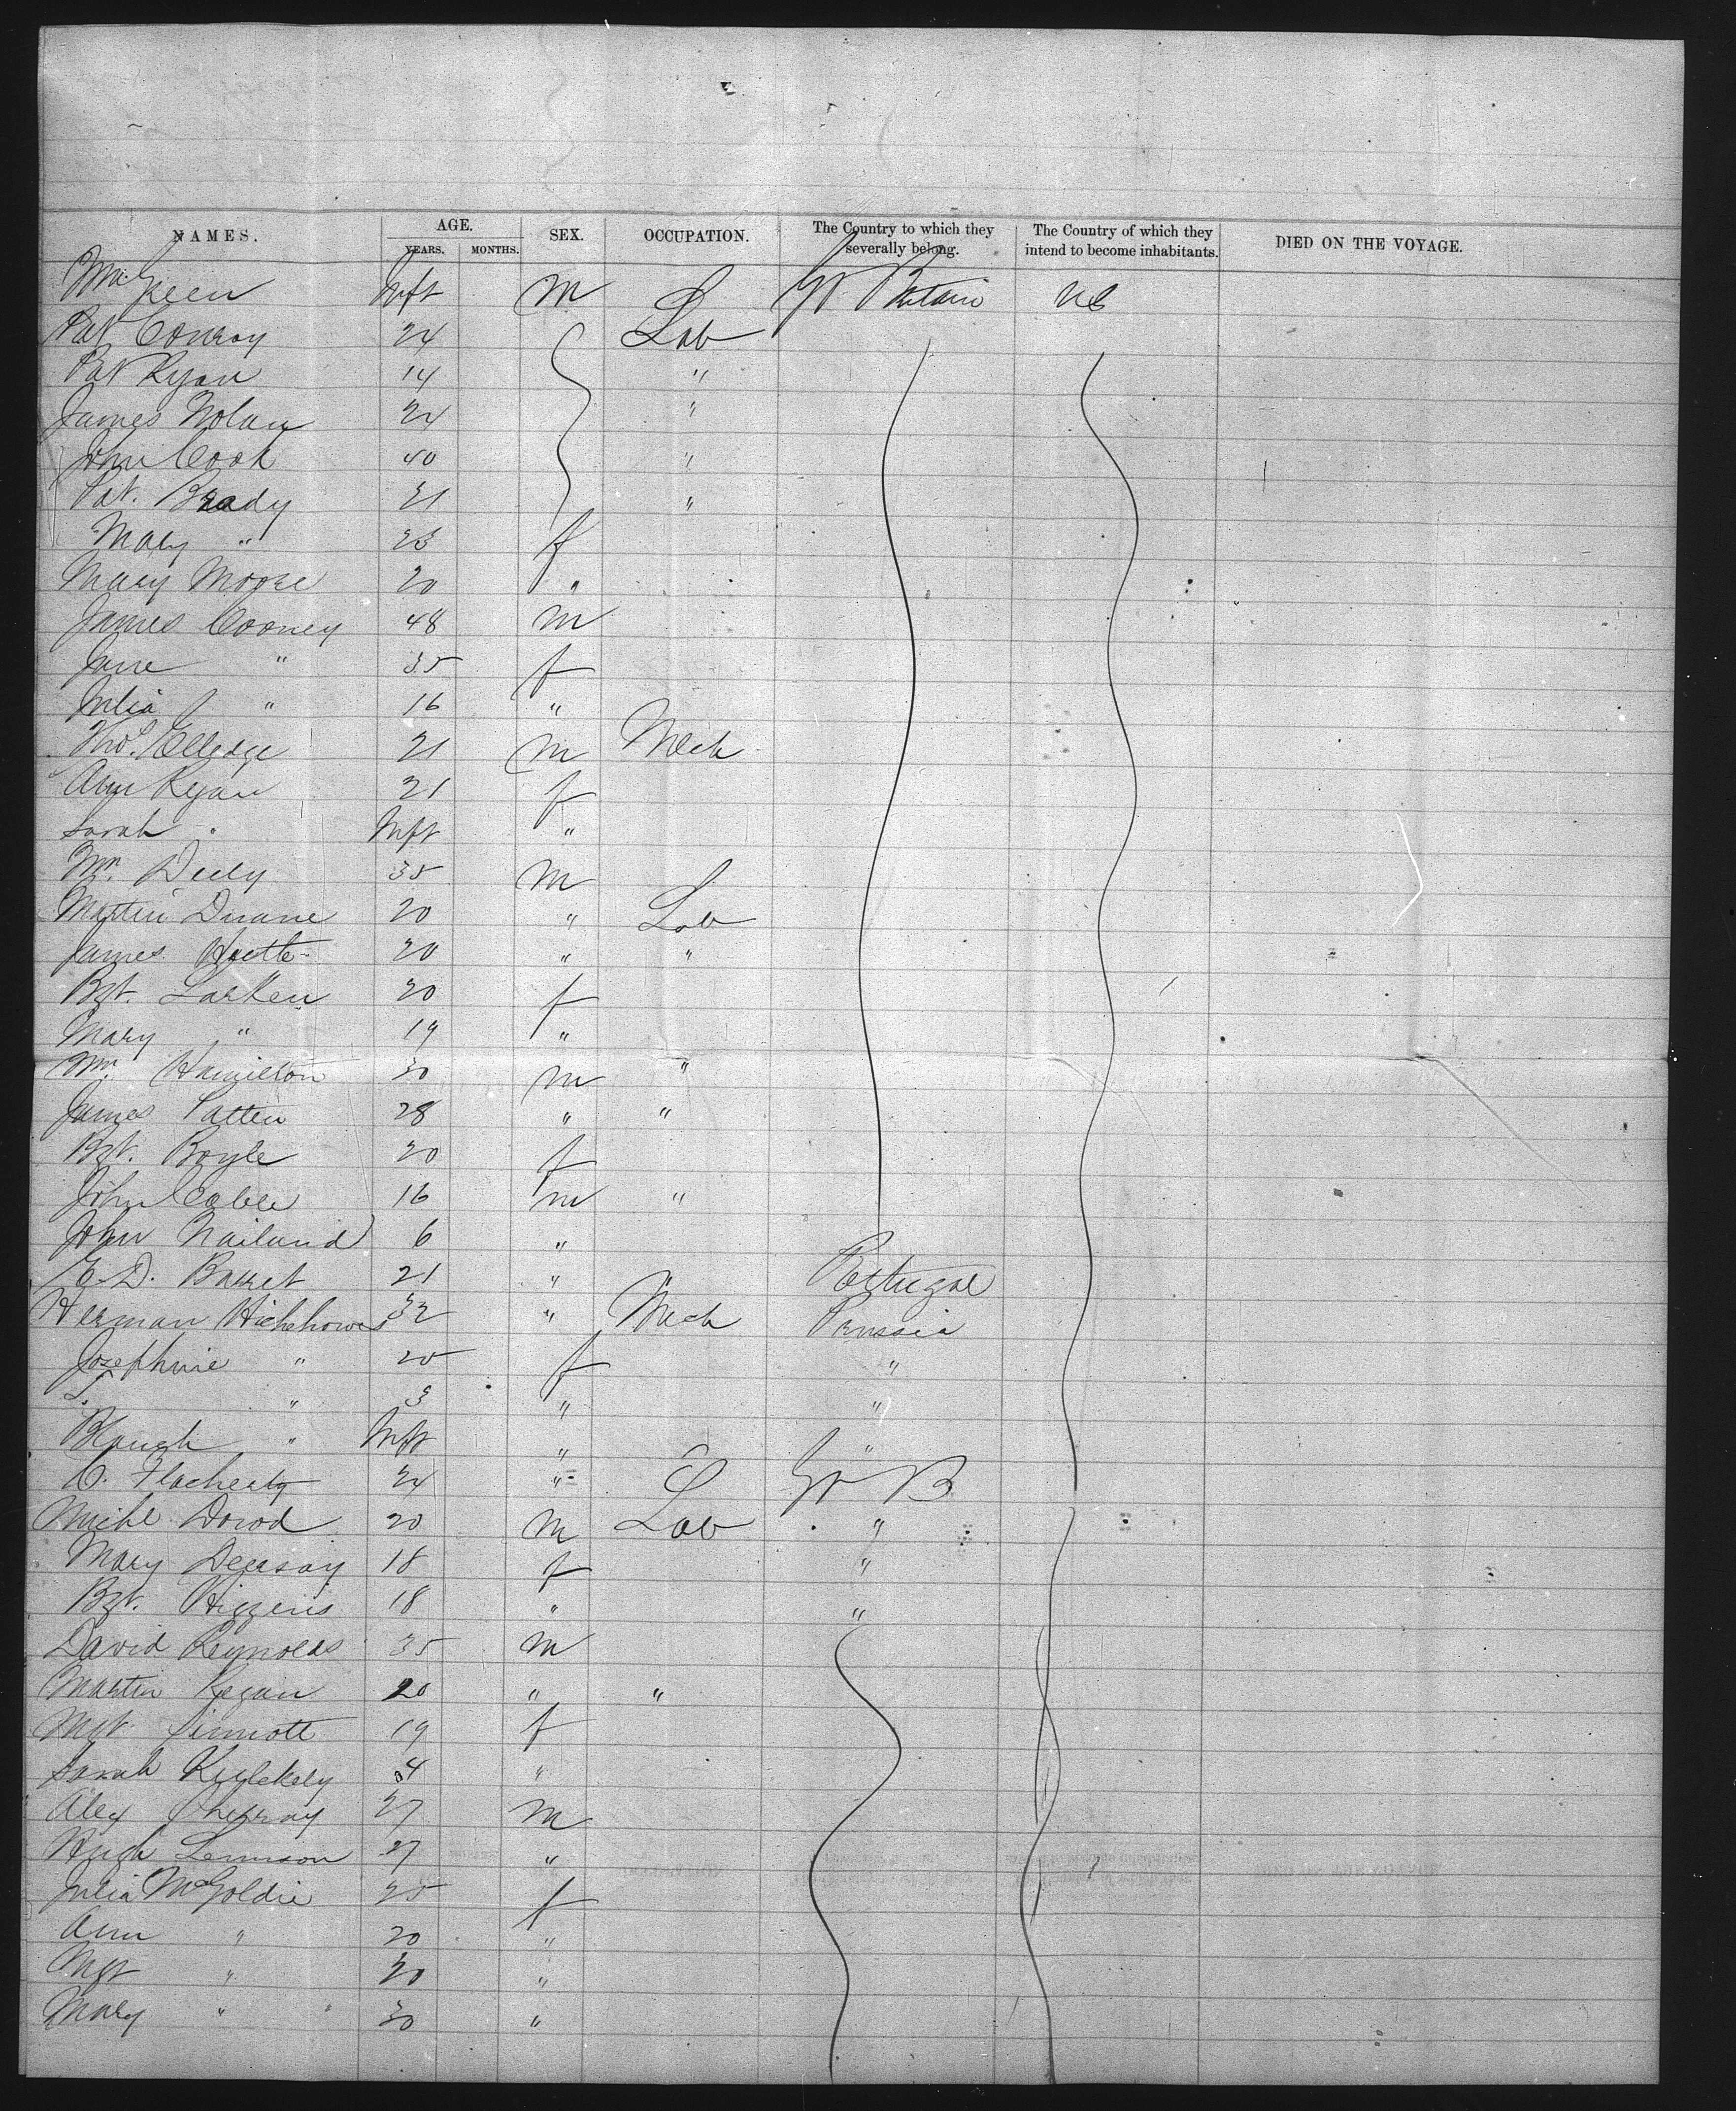 NAMES. AGE. YEARS. MONTHS. SEX. OCCUPATION. The Country to which they severally belong. The Country of which they intend to become inhabitants. DIED ON THE VOYAGE.
Wm. Green Inft m Gt Britain US
Pat Conroy 24 Lab
Pat Ryan 14 "
James Nolan 24 "
John Cook 40 "
Pat. Brady 21 "
Mary " 23 f
Mary Moore 20 "
James Cooney 48 m
Jane " 35 f
Julia " 16 "
Thos. Elledge 21 m Mech
Ann Ryan 21 f
Sarah " Inft "
Mr. Deely 35 m
Martin Duane 20 " Lab
James 20 " "
Bgt. Larken 20 f
Mary " 19 "
Wm. Hamilton 30 m "
James Patten 28 " "
Bgt. Boyle 20 f
John 16 m "
John Nailand 6 "
E. D. Barret 21 " Portugal
Herman 32 " Mech Prussia
Josephine " 25 f "
" 3 " "
" Inft " "
C. Flacherty 24 " Gt B
Michl. 20 m Lab "
Mary 18 f "
Bgt. Higgens 18 " "
David Reynolds 35 m
Martin Regan 20 " "
Mgt. Sinnott 19 f
Sarah 4 "
Alex 27 m
Hugh Lennon 27 "
Julia McGoldie 25 f
Ann " 20 "
Mgt " 30 "
Mary " 30 "